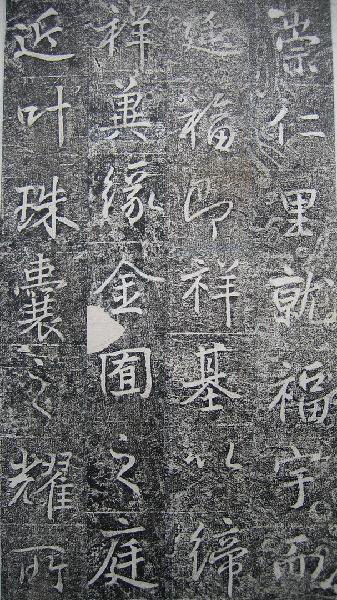 崇仁里就福宇而
延福即祥基以締
祥冀緣金園之庭
近叶珠囊之耀所